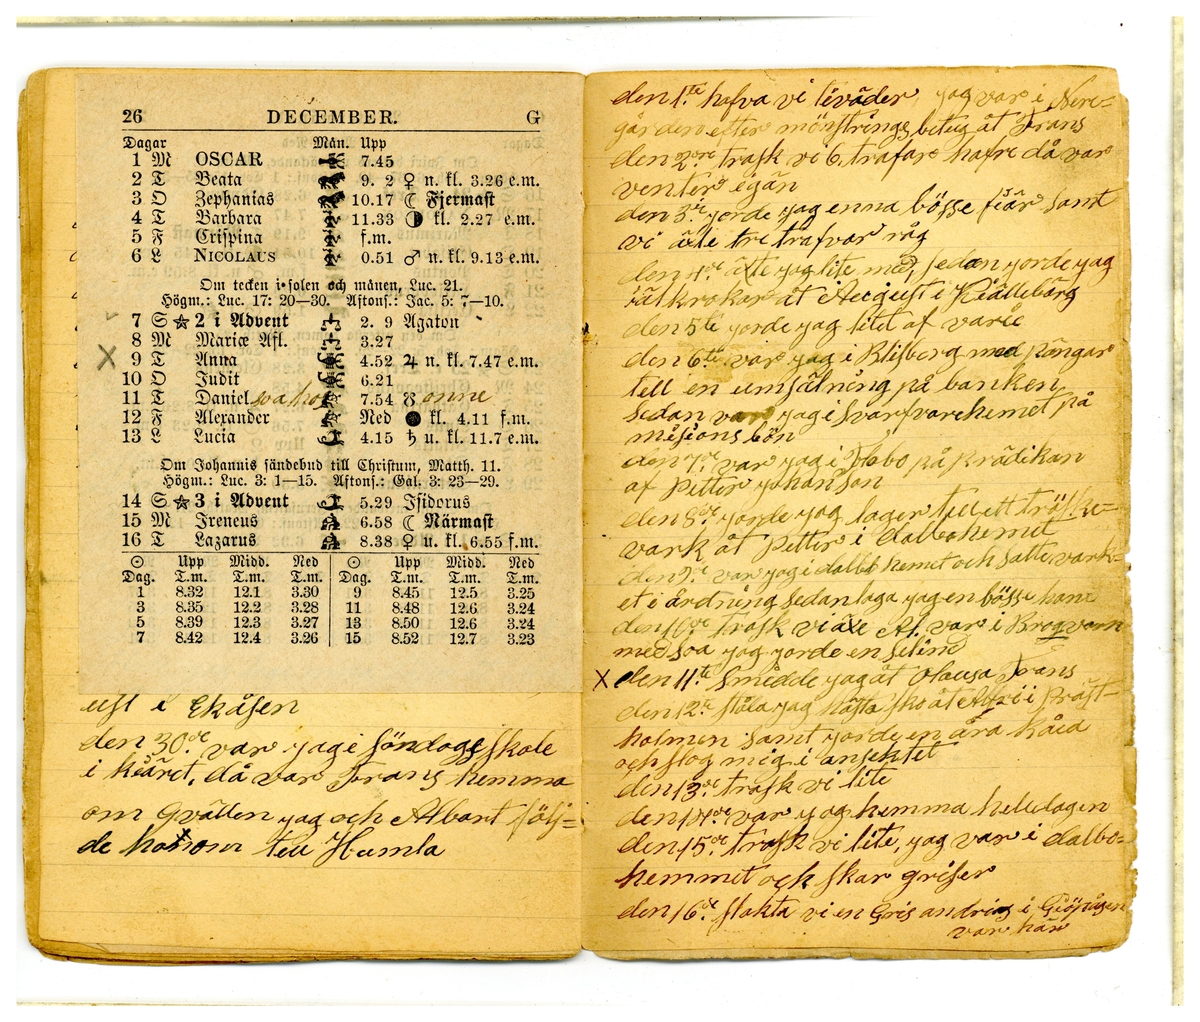 26 DECEMBER. G
Dagar Mån. Upp
1 M OSCAR 7.45
2 T Beata 9. 2 ♀ n. kl. 3.26 e.m.
3 O Zephanias 10.17 ☾ Fjermast
4 T Barbara 11.33 ◑ kl. 2.27 e.m.
5 F Crispina f.m.
6 L NICOLAUS 0.51 ♂ n. kl. 9.13 e.m.
Om tecken i solen och månen, Luc. 21.
Högm.: Luc. 17: 20—30. Aftons.: Jac. 5: 7—10.
7 S ☆ 2 i Advent 2. 9 Agaton
8 M Mariæ Afl. 3.27
X 9 T Anna 4.52 ♃ n. kl. 7.47 e.m.
10 O Judit 6.21
11 T Daniel 7.54 ☊
12 F Alexander Ned ● kl. 4.11 f.m.
13 L Lucia 4.15 ♄ u. kl. 11.7 e.m.
Om Johannis sändebud till Christum, Matth. 11.
Högm.: Luc. 3: 1—15. Aftons.: Gal. 3: 23—29.
14 S ☆ 3 i Advent 5.29 Isidorus
15 M Ireneus 6.58 ☾ Närmast
16 T Lazarus 8.38 ♀ u. kl. 6.55 f.m.
☉ Upp Midd. Ned ☉ Upp Midd. Ned
Dag. T.m. T.m. T.m. Dag. T.m. T.m. T.m.
1 8.32 12.1 3.30 9 8.45 12.5 3.25
3 8.35 12.2 3.28 11 8.48 12.6 3.24
5 8.39 12.3 3.27 13 8.50 12.6 3.24
7 8.42 12.4 3.26 15 8.52 12.7 3.23
ust i Ekåsen
den 30de var yag i söndags skole
i kiäret, då var Frans hemma
om qvällen yag och Albart följ=
de honom tell Humla
den 1ta hafva vi töväder, yag var i Nere=
gården efter mönstrings betug åt Frans
den 2dre trask vi 6, trafar hafre då var
venter egän
den 3de yorde yag enna bösse fiär samt
vi äxte tre trafvar råg
den 4de äxte yag lite med, sedan yorde yag
iälkrokar åt August i Kiälleberg
den 5te yorde yag litet af varie
den 6te var yag i Blifberg med pängar
tell en umsätning på banken
sedan var yag i Svarfvarehemet på
misions bön
den 7de var yag i Habo på prädikan
af Petter Johanson
den 8de yorde yag lager tell ett tröske=
vark åt Petter i dalbohemet
den 9de var yag i dalbohemet och satte vark=
et i ordning sedan laga yag en bösse hane
den 10de trask vi äxe Al. var i Broqvarn
med soa yag yorde en selind
X den 11te smedde yag åt Olausa Frans
den 12te ståla yag hästa sko åt i Präst=
holmen samt yorde en åra kåca
och slog mig i ansektet
den 13de trask vi lite
den 14de var yag hemma hele dagen
den 15de trask vi lite, yag var i dalbo=
hemmet och skar griser
den 16de slakta vi en Gris andrias i Giöpåsen
var här